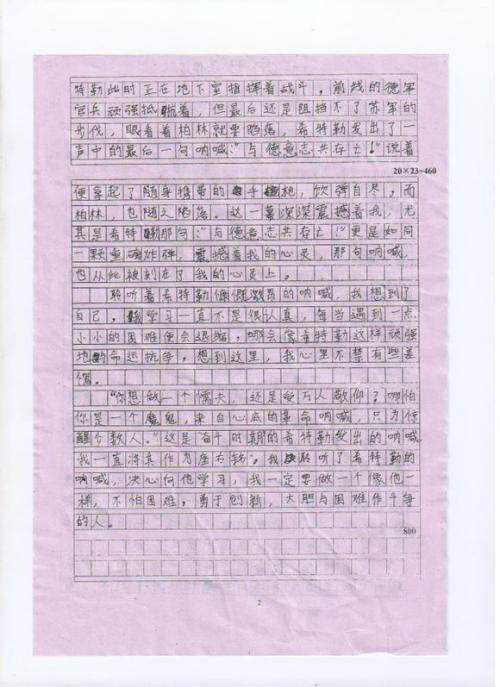 特勒此时正在地下室指挥着战斗。前线的德军
官兵顽强抵抗着，但最后还是阻挡不了苏军的
步伐，眼看着柏林就要陷落，希特勒发出了一
声中的最后一句呐喊：“与德意志共存亡！”说着
20×23=460
便拿起了随身携带的手枪，饮弹自尽，而
柏林，也随之陷落。这一幕深深震撼着我，尤
其是希特勒那句：“与德意志共存亡！”更是如同
一颗重磅炸弹，震撼着我的心灵，那句呐喊，
也从此被刻在了我的心灵上。
聆听着希特勒慷慨激昂的呐喊，我想到了
自己，我学习一直不是很认真，每当遇到一点
小小的困难便会退缩，哪会像希特勒这样顽强
地与命运抗争，想到这里，我心里不禁有些羞
愧。
“你想做一个懦夫，还是受万人敬仰？哪怕
你是一个魔鬼，来自心底的革命呐喊，只为惊
醒个数人。”这是奋斗时期的希特勒发出的呐喊
我一直将其作为座右铭。我聆听了希特勒的
呐喊，决心向他学习，我一定要做一个像他一
样，不怕困难，勇于创新，大胆与困难作斗争
的人。
800
2